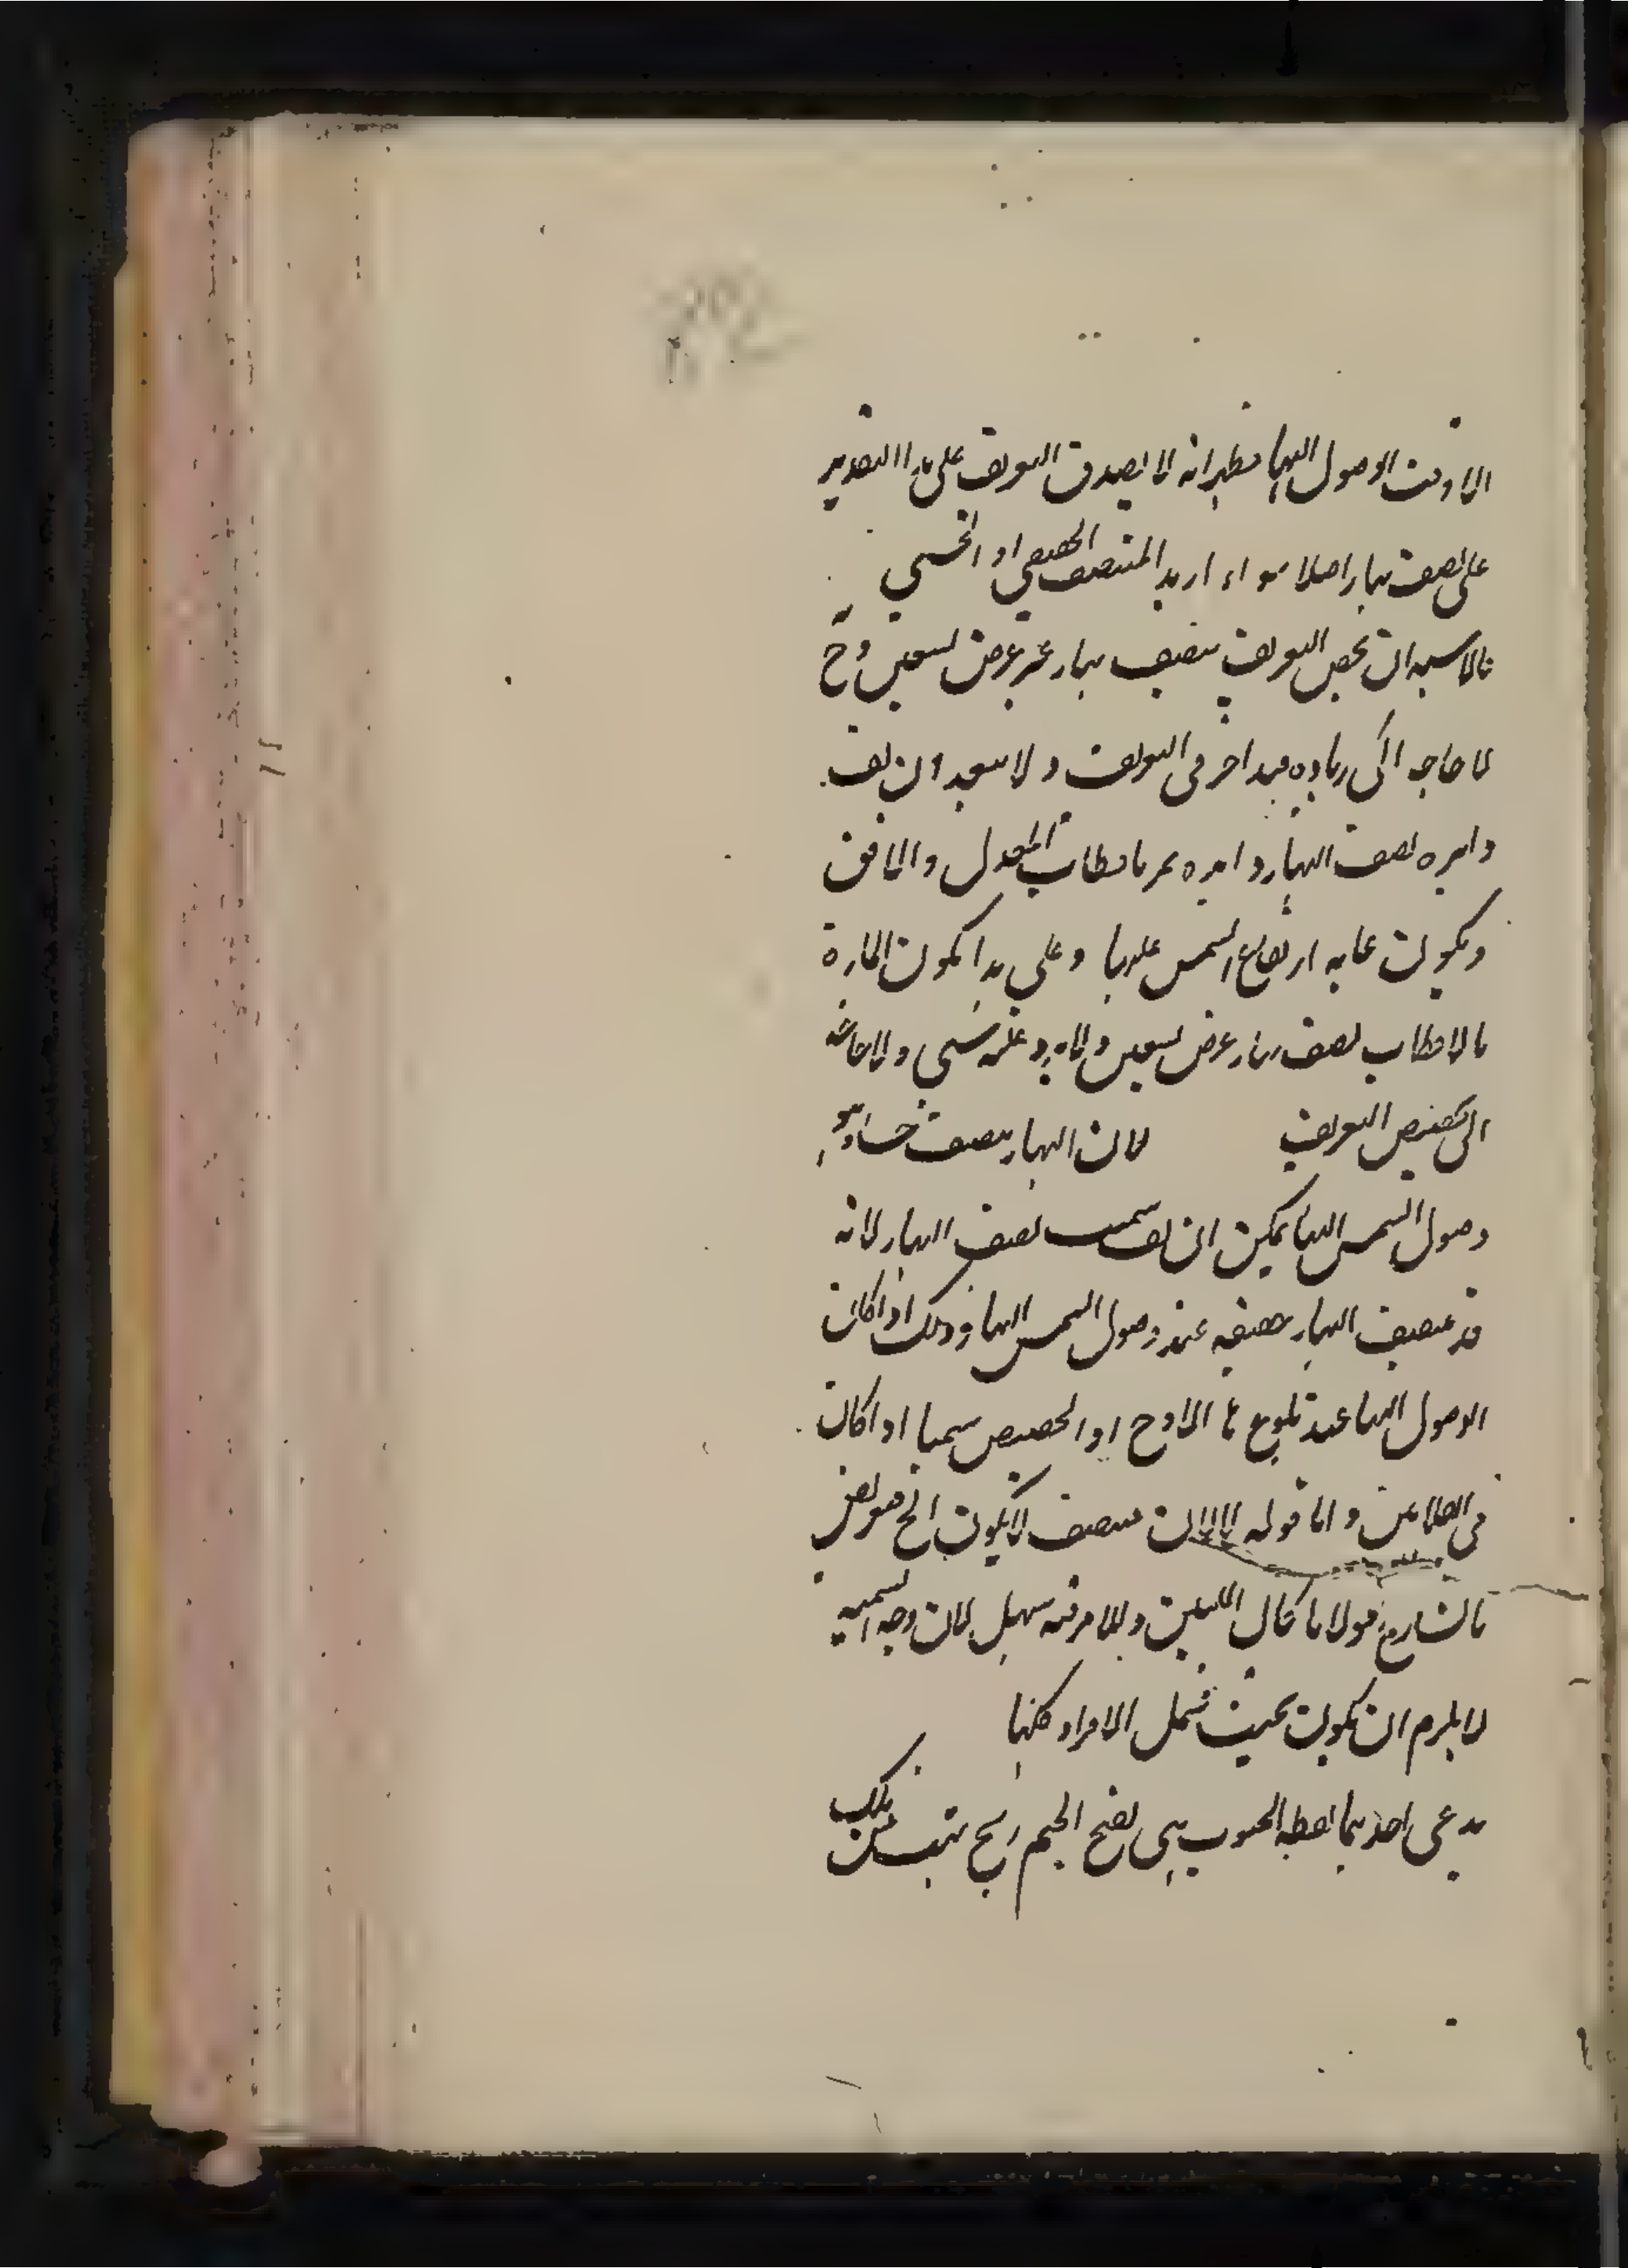 الا وقت الوصول اليها فظهر انه لا يصدق التعريف على هذا التقدير
على نصف نهار اصلا سواء اريد المنتصف الحقيقي او الحسي
فالاسبه ان يخص التعريف بنصف نهار غير عرض تسعين وح
لا حاجه الى زياده قيد اخر فى التعريف و لا يبعد ان يق
دايره نصف النهار دايره تمر باقطاب المعدل والافق
ويكون غايه ارتفاع الشمس عليها و على هذا يكون الماره
بالاقطاب نصف نهار عرض تسعين ولا يرد عليه شىء و لا حاجه
الى تخصيص التعريف لان النهار ينصف حسا هو
وصول الشمس اليها يمكن ان يق سميت نصف النهار لانه
قد ينصف النهار حقيقه عند وصول الشمس اليها وذلك اذا كان
الوصول اليها عند بلوغها الاوج او الحضيض سيما اذا كان
فى الانقلابين و اما قوله لا لان منتصف لا يكون الخ فهو تعريض
بالشارح مولانا كمال الدين و الامر فيه سهل لان وجه التسميه
لا يلزم ان يكون بحيث يشمل الافراد كلها
يدعى احديهما نقطه الجنوب هى بفتح الجيم ريح تهب من تلك